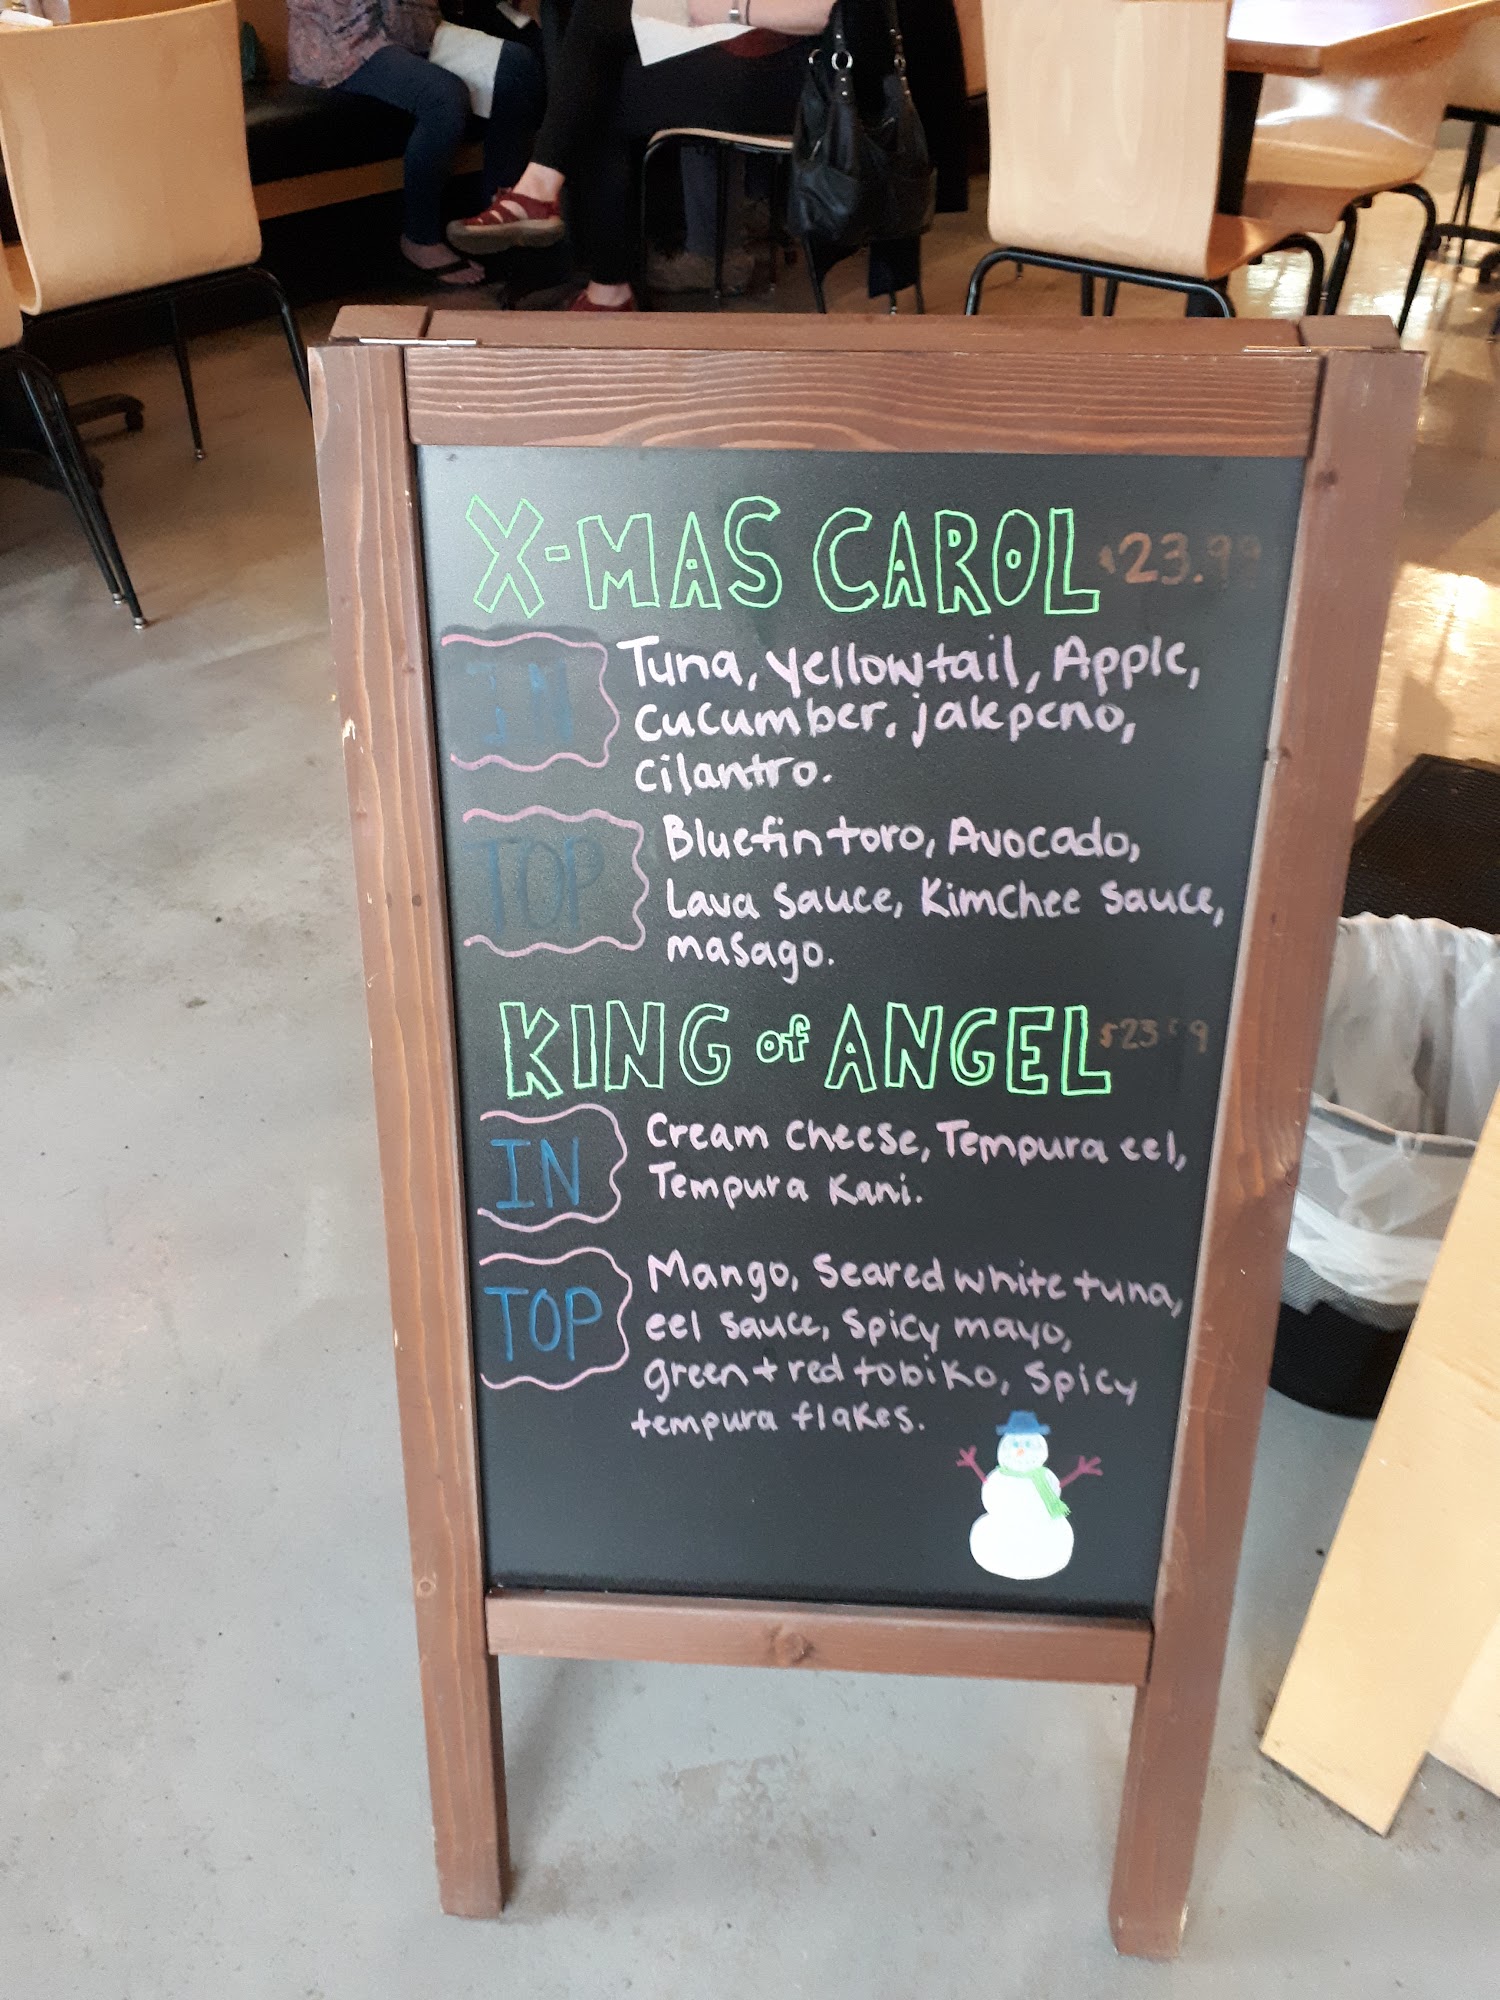 X-MAS CAROL $23.99
IN
Tuna, Yellowtail, Apple,
cucumber, jalepeno,
cilantro.
TOP
Bluefin toro, Avocado,
Lava sauce, Kimchee sauce,
masago.
KING of ANGEL $23.99
IN
Cream cheese, Tempura eel,
Tempura Kani.
TOP
Mango, Seared white tuna,
eel sauce, spicy mayo,
green + red tobiko, spicy
tempura flakes.